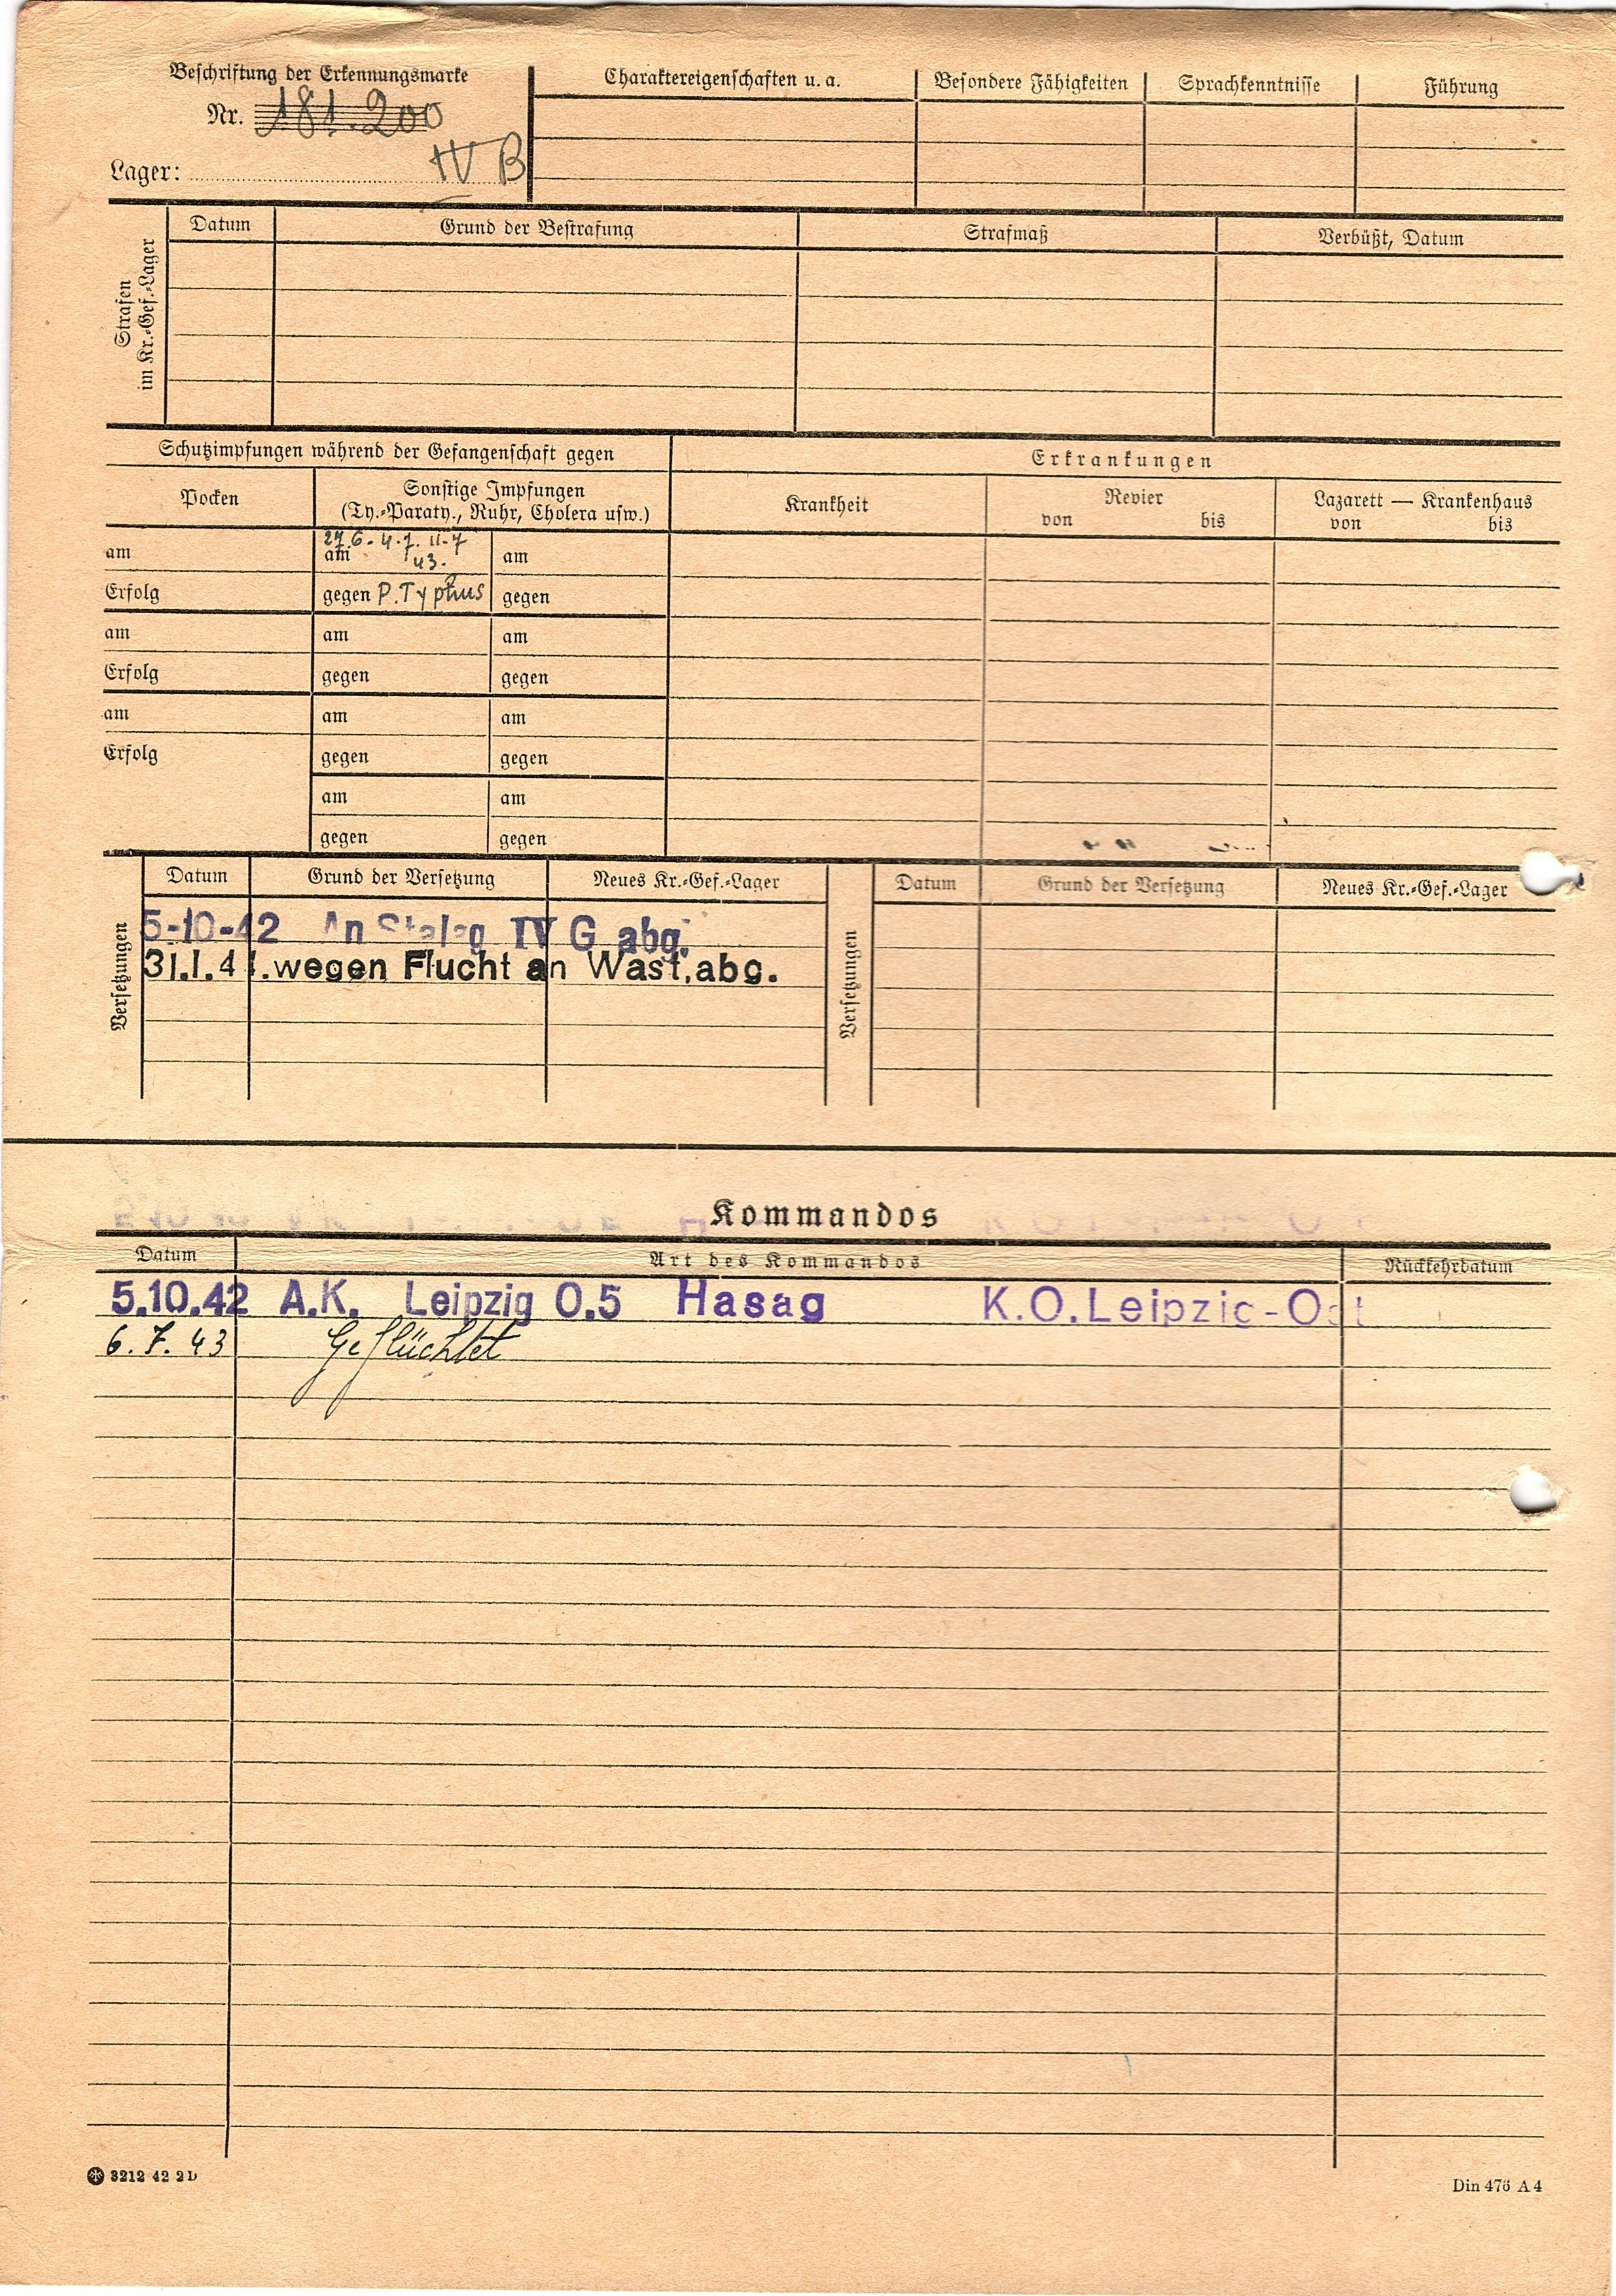 Beschriftung der Erkennungsmarke
Nr. 181.200
Lager: IV B
Charaktereigenschaften u. a.
Besondere Fähigkeiten
Sprachkenntnisse
Führung
Strafen
im Kr.-Gef.-Lager
Datum
Grund der Bestrafung
Strafmaß
Verbüßt, Datum
Schutzimpfungen während der Gefangenschaft gegen
Erkrankungen
Pocken
Sonstige Impfungen
(Ty.-Paraty., Ruhr, Cholera usw.)
Krankheit
Revier
von bis
Lazarett — Krankenhaus
von bis
27.6 - 4.7. 11.7
am am 43. am
Erfolg gegen P. Typhus gegen
am am am
Erfolg gegen gegen
am am am
Erfolg gegen gegen
am am
gegen gegen
Versetzungen
Datum Grund der Versetzung Neues Kr.-Gef.-Lager
5-10-42 An Stalag IV G abg.
31.1.44.wegen Flucht an Wast.abg.
Versetzungen
Datum Grund der Versetzung Neues Kr.-Gef.-Lager
Kommandos
Datum Art des Kommandos Rückkehrdatum
5.10.42 A.K. Leipzig O.5 Hasag K.O.Leipzig-Ost
6. 7. 43 Geflüchtet
3212 42 2 D
Din 476 A 4